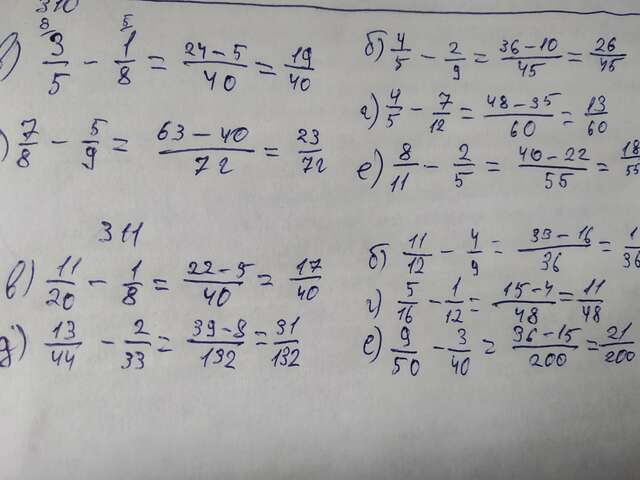 310
в) 3/5 - 1/8 = (24-5)/40 = 19/40 б) 4/5 - 2/9 = (36-10)/45 = 26/45
8 5
) 7/8 - 5/9 = (63-40)/72 = 23/72 г) 4/5 - 7/12 = (48-35)/60 = 13/60
е) 8/11 - 2/5 = (40-22)/55 = 18/55
311
в) 11/20 - 1/8 = (22-5)/40 = 17/40 б) 11/12 - 4/9 = (33-16)/36 = 1/36
г) 5/16 - 1/12 = (15-4)/48 = 11/48
д) 13/44 - 2/33 = (39-8)/132 = 31/132 е) 9/50 - 3/40 = (36-15)/200 = 21/200